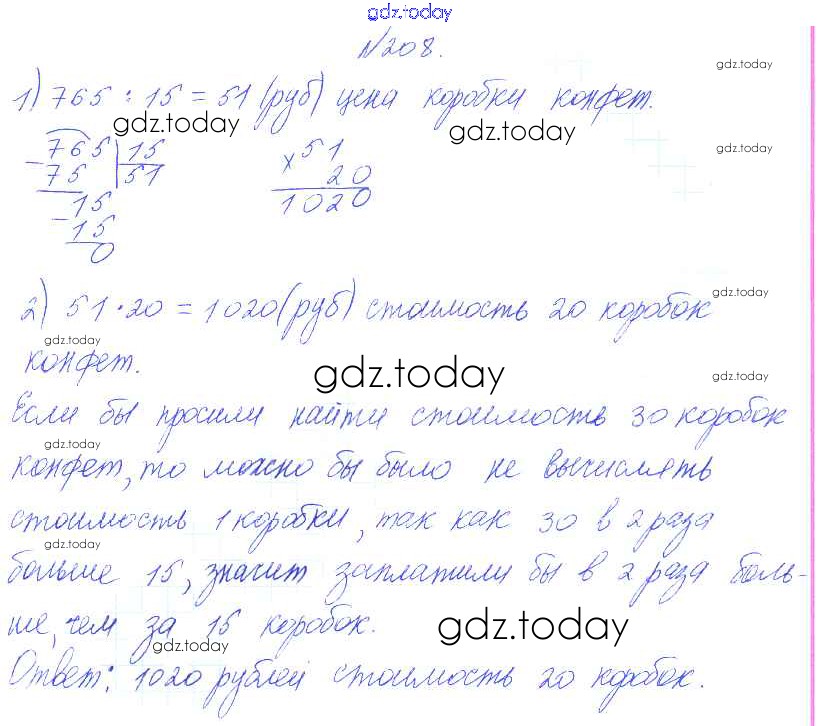 gdz.today
№208.
gdz.today
1) 765 : 15 = 51 (руб) цена коробки конфет.
gdz.today gdz.today
765 15 ×51
gdz.today
-75 51 20
15 1020
-15
0
gdz.today
2) 51 · 20 = 1020 (руб) стоимость 20 коробок
gdz.today
конфет.
gdz.today
gdz.today
Если бы просили найти стоимость 30 коробок
gdz.today
конфет, то можно бы было не вычислять
стоимость 1 коробки, так как 30 в 2 раза
gdz.today
больше 15, значит заплатили бы в 2 раза боль-
ше, чем за 15 коробок.
gdz.today
gdz.today
Ответ: 1020 рублей стоимость 20 коробок.